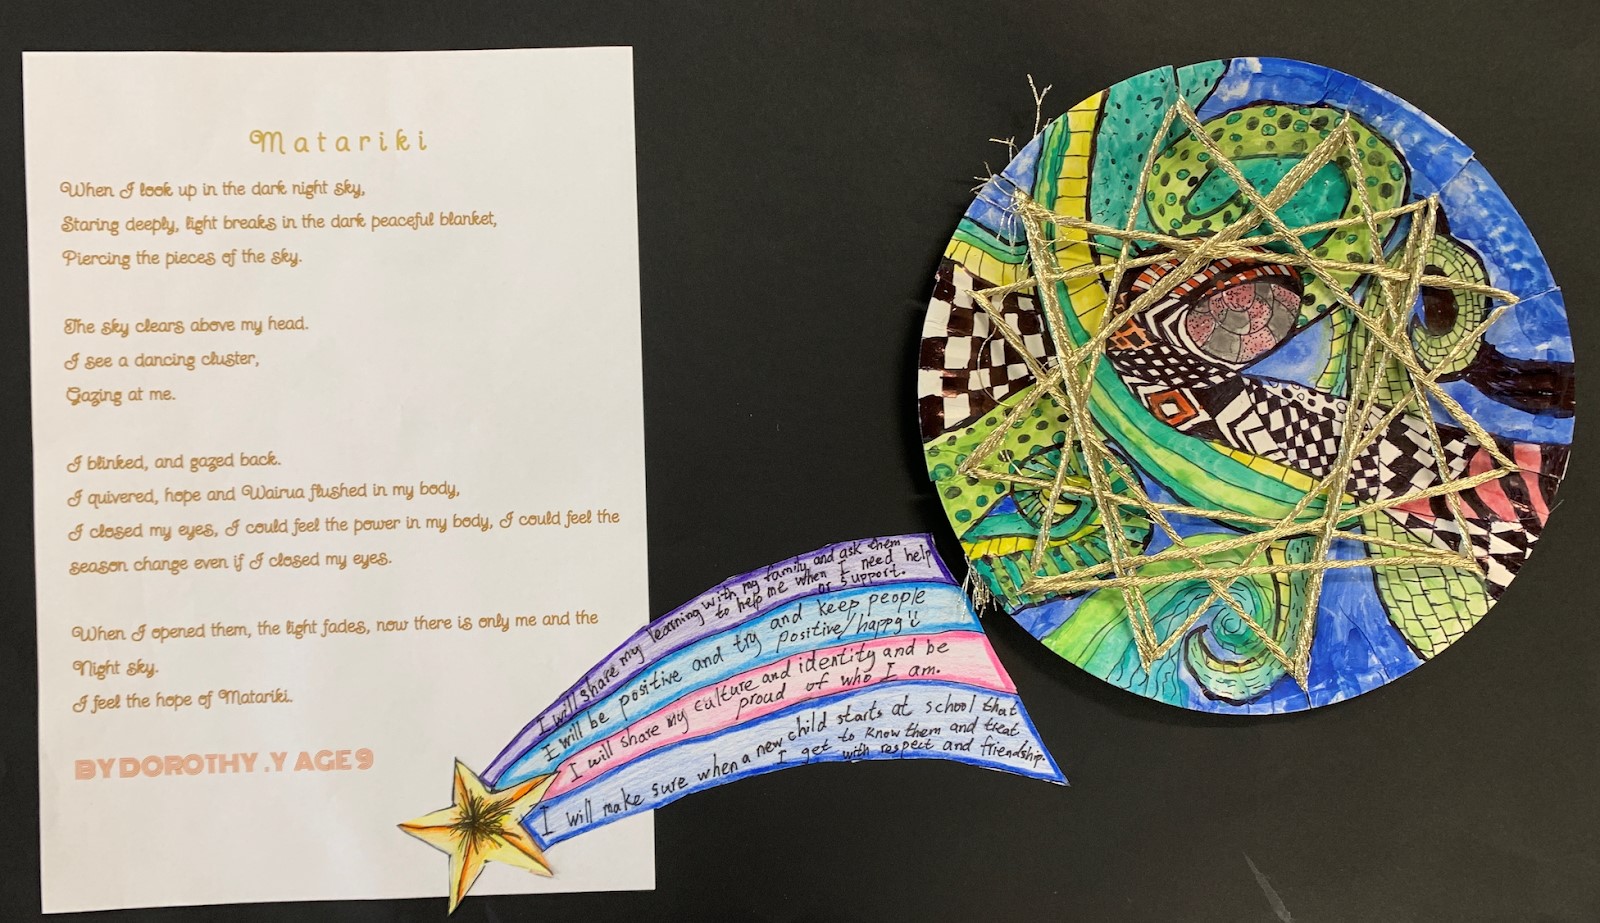 Matariki
When I look up in the dark night sky,
Staring deeply, light breaks in the dark peaceful blanket,
Piercing the pieces of the sky.
The sky clears above my head.
I see a dancing cluster,
Gazing at me.
I blinked, and gazed back.
I quivered, hope and Wairua flushed in my body,
I closed my eyes, I could feel the power in my body, I could feel the
season change even if I closed my eyes.
When I opened them, the light fades, now there is only me and the
Night sky.
I feel the hope of Matariki.
BY DOROTHY .Y AGE 9
I will share my learning with my family and ask them
to help me when I need help
or support.
I will be positive and try and keep people
positive/happy
I will share my culture and identity and be
proud of who I am.
I will make sure when a new child starts at school that
I get to know them and treat
with respect and friendship.